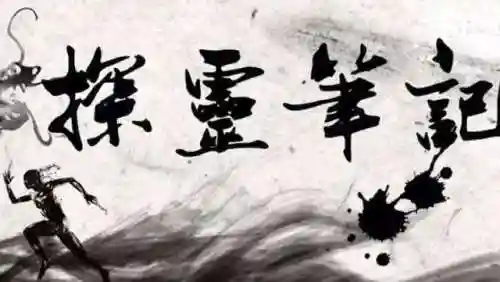 探靈筆記